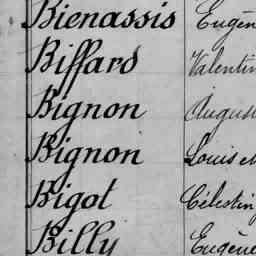 Bienassis Eugèn
Biffard Valentin
Bignon August
Bignon Louis M
Bigot Célestin
Billy Eugène